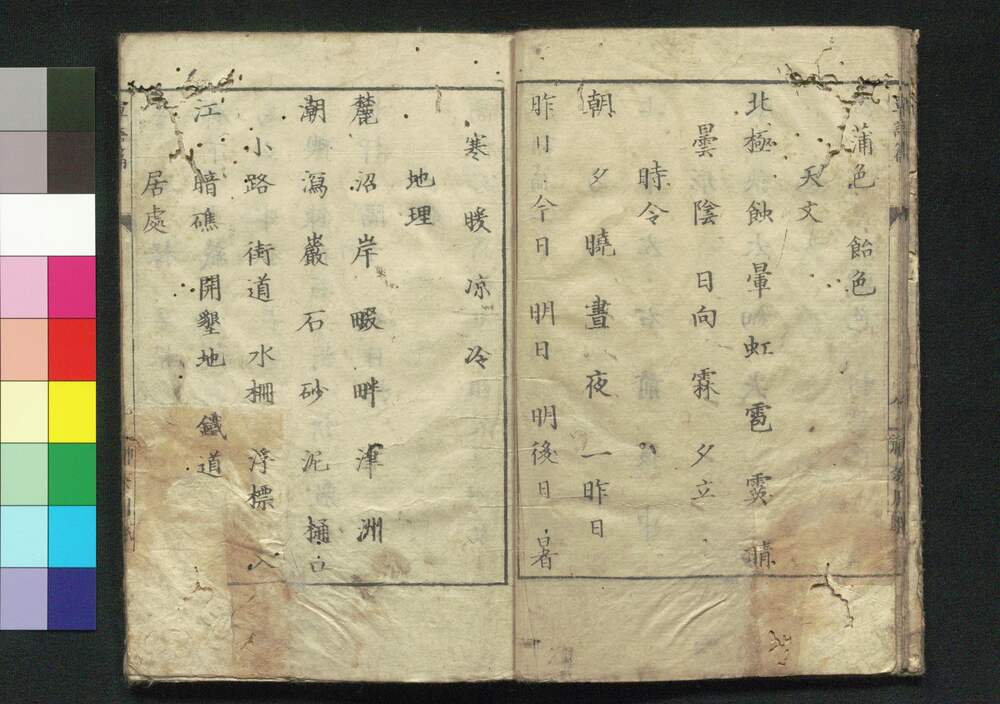 蒲色 飴色
天文
北極 蝕 暈 虹 雹 霙 晴
曇 陰 日向 霖 夕立
時令
朝 夕 曉 晝 夜 一昨日
昨日 今日 明日 明後日 暑
寒 暖 凉 冷
地理
麓 沼 岸 畷 畔 津 洲
潮 瀉 巖 石 砂 泥 樋口
小路 街道 水柵 浮標 入
江 暗礁 開墾地 鐵道
居處